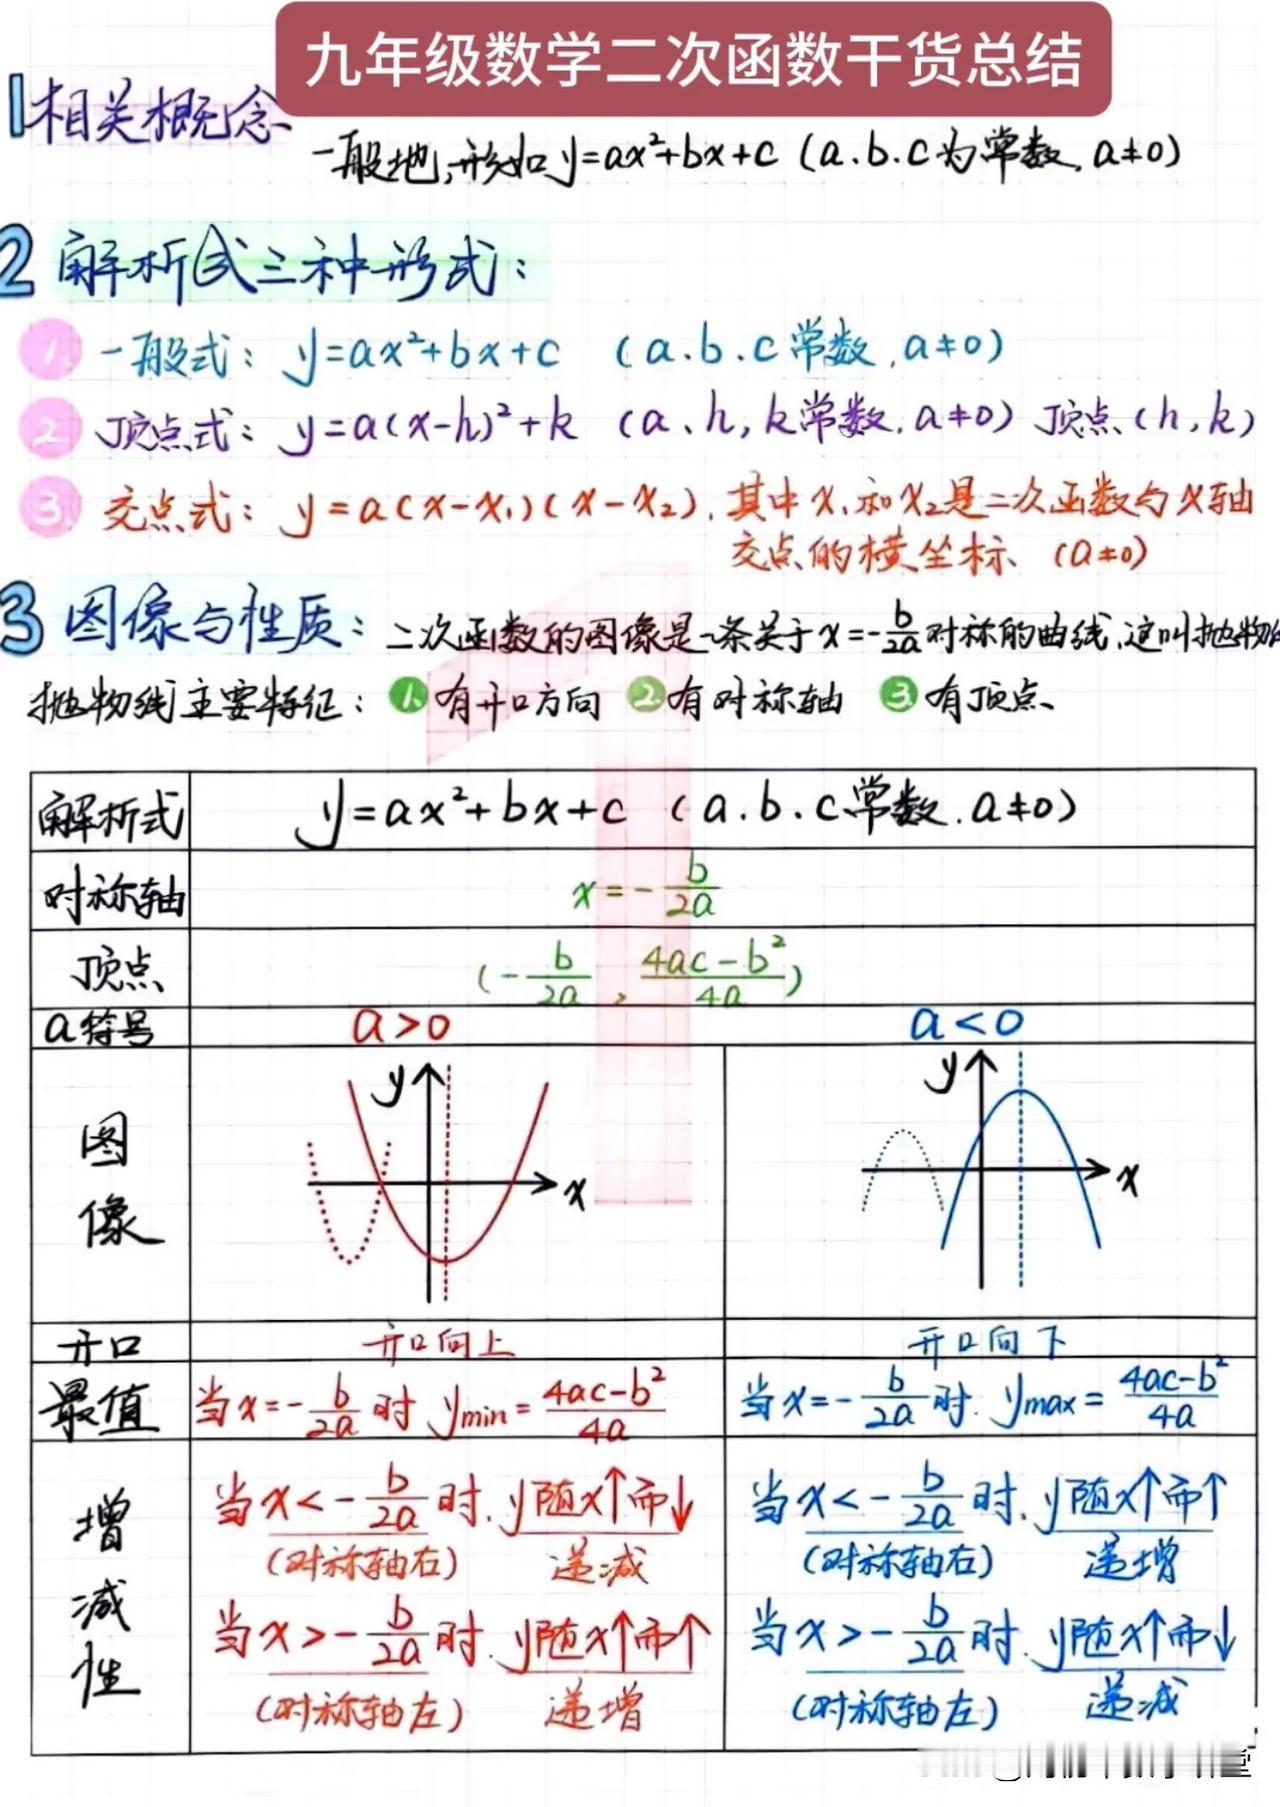 九年级数学二次函数干货总结
1 相关概念
一般地,形如y=ax²+bx+c (a.b.c为常数,a≠0)
2 解析式三种形式:
1. 一般式: y=ax²+bx+c (a.b.c常数,a≠0)
2 顶点式: y=a(x-h)²+k (a、h,k常数,a≠0) 顶点(h,k)
3. 交点式: y=a(x-x₁)(x-x₂), 其中x₁和x₂是二次函数与x轴
交点的横坐标、(a≠0)
3 图像与性质: 二次函数的图像是一条关于x=-b/2a对称的曲线,这叫抛物
抛物线主要特征: 1. 有开口方向 2. 有对称轴 3. 有顶点、
解析式 y=ax²+bx+c (a.b.c常数,a≠0)
对称轴 x=-b/2a
顶点 (-b/2a, (4ac-b²)/4a)
a符号 a>0 a<0
图像 y x y x
开口 开口向上 开口向下
最值 当x=-b/2a时 ymin=(4ac-b²)/4a 当x=-b/2a时. ymax=(4ac-b²)/4a
增减性
当x<-b/2a时, y随x↑而↓ 当x<-b/2a时, y随x↑而↑
(对称轴右) 递减 (对称轴右) 递增
当x>-b/2a时, y随x↑而↑ 当x>-b/2a时, y随x↑而↓
(对称轴左) 递增 (对称轴左) 递减